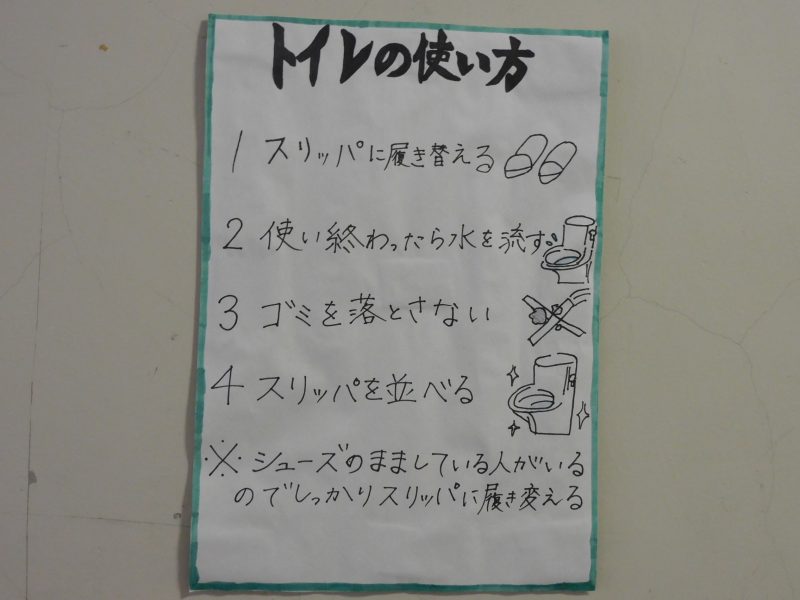 トイレの使い方
1 スリッパに履き替える
2 使い終わったら水を流す
3 ゴミを落とさない
4 スリッパを並べる
※シューズのまましている人がいる
のでしっかりスリッパに履き変える